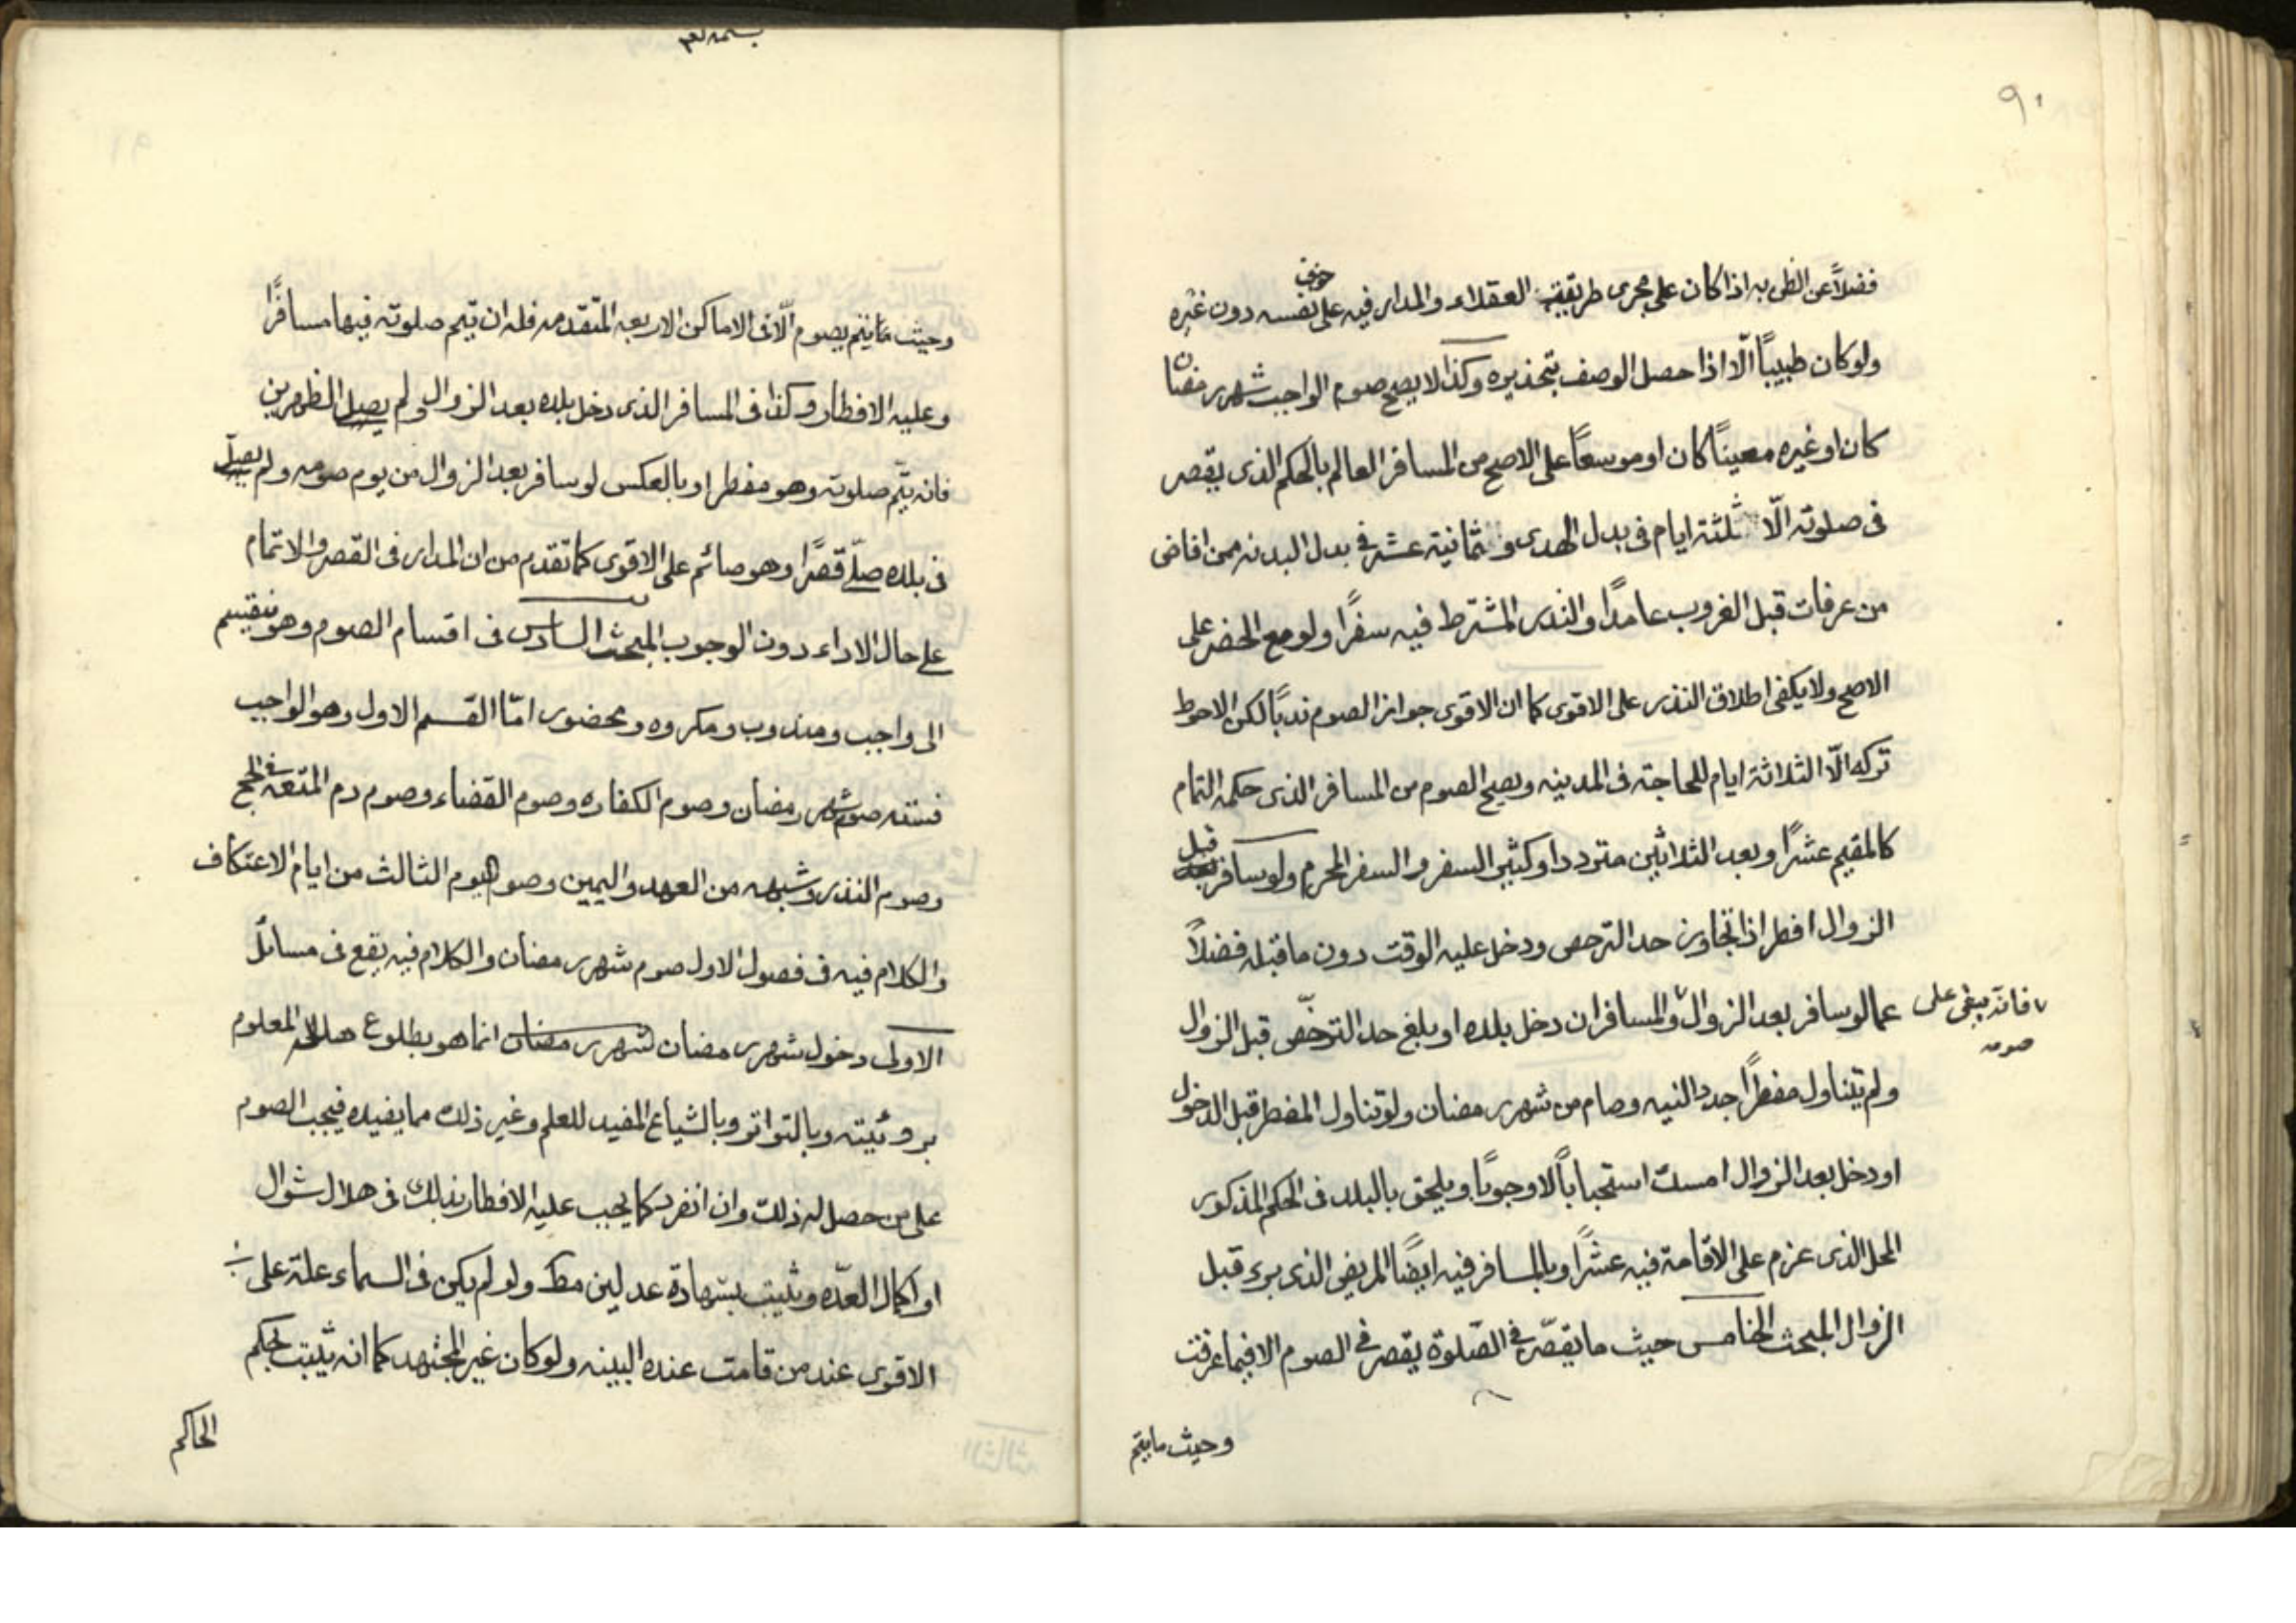 ٩٠
فضلاً عن الظن به اذا كان على مجرى طريقة العقلاء والمدار فيه على خوف نفسه دون غيره
ولو كان طبيباً الّا اذا حصل الوصف بتحذيره وكذا لا يصح صوم الواجب شهر رمضان
كان او غيره معيناً كان او موسعاً على الاصح من المسافر العالم بالحكم الذى يقصر
فى صلوته الّا ثلثة ايام فى بدل الهدى وثمانية عشر فى بدل البدنه ممن افاض
من عرفات قبل الغروب عامداً والنذر المشترط فيه سفراً ولو مع الحضر على
الاصح ولا يكفى اطلاق النذر على الاقوى كما ان الاقوى جواز الصوم ندباً لكن الاحوط
تركه الّا الثلاثة ايام للحاجة فى المدينه ويصح الصوم من المسافر الذى حكمه التمام
كالمقيم عشراً وبعد الثلاثين مترددا وكثير السفر والسفر المحرم ولو سافر قبل
الزوال افطر اذا تجاوز حد الترخص ودخل عليه الوقت دون ما قبله فضلاً
عما لو سافر بعد الزوال فانه يبقى على صومه والمسافر ان دخل بلده او بلغ حد الترخّص قبل الزوال
ولم يتناول مفطراً جدد النيه وصام من شهر رمضان ولو تناول المفطر قبل الدخول
او دخل بعد الزوال امسك استحباباً لا وجوباً ويلحق بالبلد فى الحكم المذكور
المحل الذى عزم على الاقامة فيه عشراً وبالمسافر فيه ايضاً المريض الذى برء قبل
الزوال المبحث الخامس حيث ما يقصّر فى الصّلوة يقصر فى الصوم الا فيما عرفت
وحيث ما يتم
وحيث ما يتم يصوم الّا فى الاماكن الاربعه المتقدمه فله ان يتم صلوته فيها مسافراً
وعليه الافطار وكذا فى المسافر الذى دخل بلده بعد الزوال ولم يصل الظهرين
فانه يتّم صلوته وهو مفطر او بالعكس لو سافر بعد الزوال من يوم صومه ولم يصل
فى بلده صلّى قصراً وهو صائم على الاقوى كما تقدم من ان المدار فى القصر والاتمام
على حال الاداء دون الوجوب المبحث السادس فى اقسام الصوم وهو ينقسم
الى واجب ومندوب ومكروه ومحضور امّا القسم الاول وهو الواجب
فمنه صوم شهر رمضان وصوم الكفاره وصوم القضاء وصوم دم المتعه فى الحج
وصوم النذر وشبهه من العهد واليمين وصوم اليوم الثالث من ايام الاعتكاف
والكلام فيه فى فصول الاول صوم شهر رمضان والكلام فيه يقع فى مسائل
الاولى دخول شهر رمضان شهر رمضان انما هو بطلوع هلاله المعلوم
بروئيته وبالتواتر وبالشياع المفيد للعلم وغير ذلك مما يفيده فيجب الصوم
على من حصل له ذلك وان انفرد كما يجب عليه الافطار بذلك فى هلال شوال
او اكمال العدّه ويثبت بشهادة عدلين مط ولو لم يكن فى السماء علة على
الاقوى عند من قامت عنده البينه ولو كان غير المجتهد كما انه يثبت بحكم
الحاكم